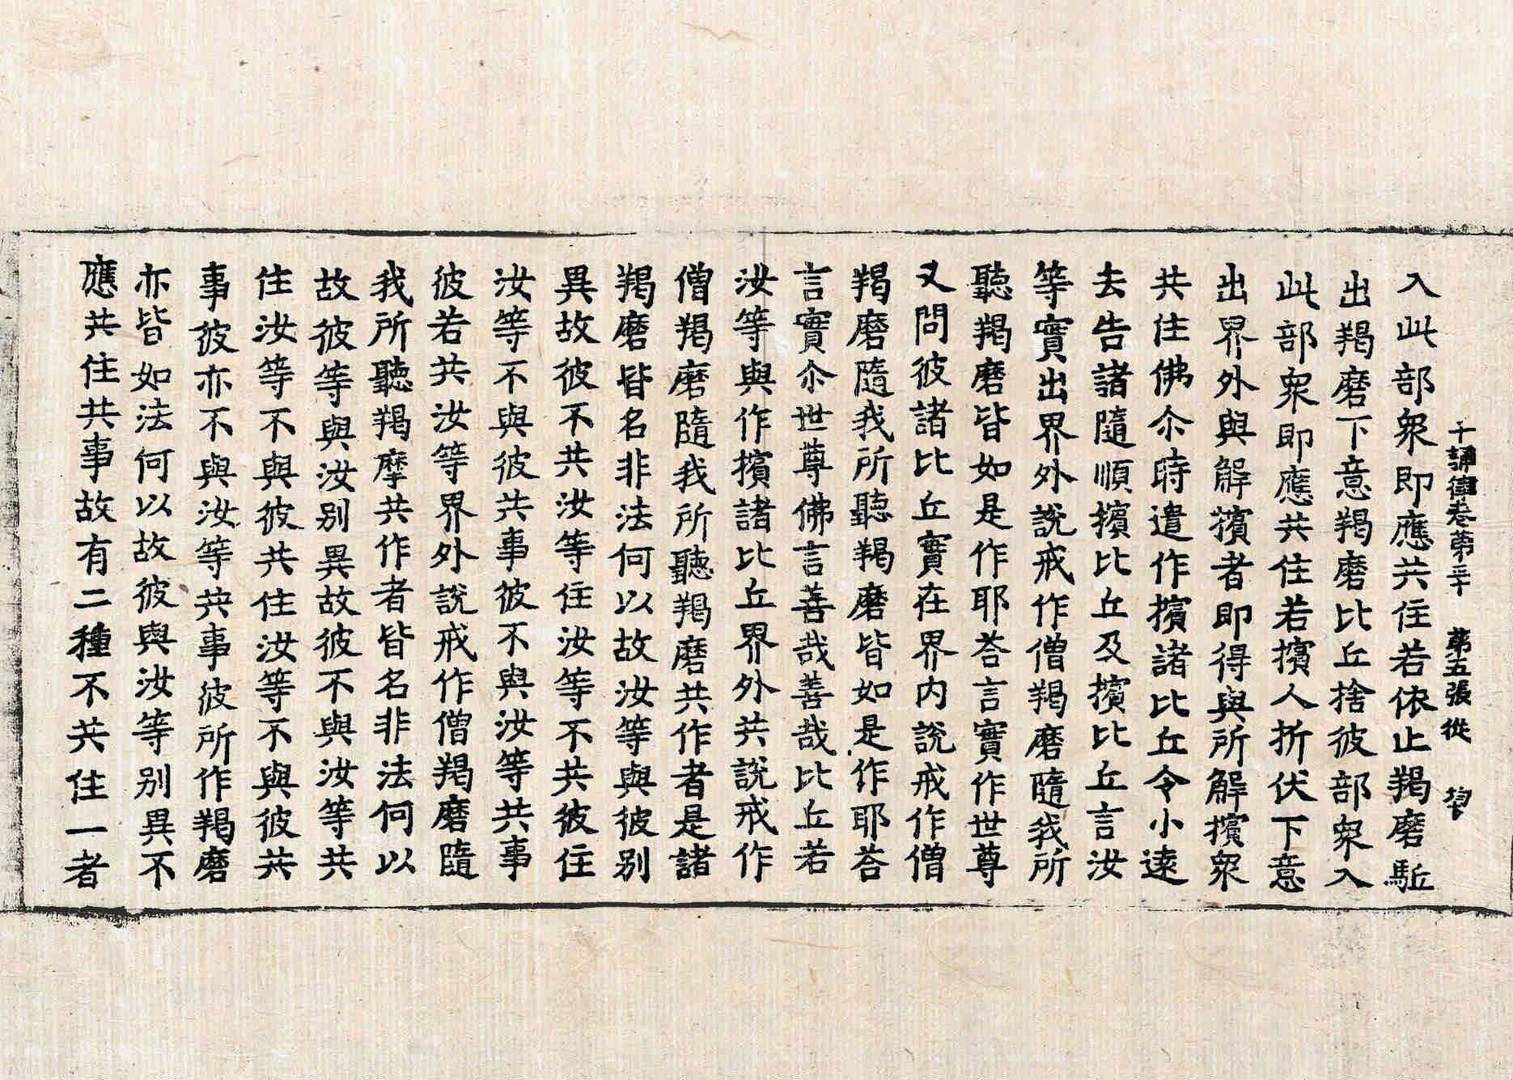 十誦律卷第三十　第五張　從
入此部衆即應共住若依止羯磨駈
出羯磨下意羯磨比丘捨彼部衆入
此部衆即應共住若擯人折伏下意
出界外與解擯者即得與所解擯衆
共住佛尒時遣作擯諸比丘令小遠
去告諸隨順擯比丘及擯比丘言汝
等實出界外說戒作僧羯磨隨我所
聽羯磨皆如是作耶荅言實作世尊
又問彼諸比丘實在界内說戒作僧
羯磨隨我所聽羯磨皆如是作耶荅
言實尒世尊佛言善哉善哉比丘若
汝等與作擯諸比丘界外共說戒作
僧羯磨隨我所聽羯磨共作者是諸
羯磨皆名非法何以故汝等與彼別
異故彼不共汝等住汝等不共彼住
汝等不與彼共事彼不與汝等共事
彼若共汝等界外說戒作僧羯磨隨
我所聽羯摩共作者皆名非法何以
故彼等與汝別異故彼不與汝等共
住汝等不與彼共住汝等不與彼共
事彼亦不與汝等共事彼所作羯磨
亦皆如法何以故彼與汝等別異不
應共住共事故有二種不共住一者